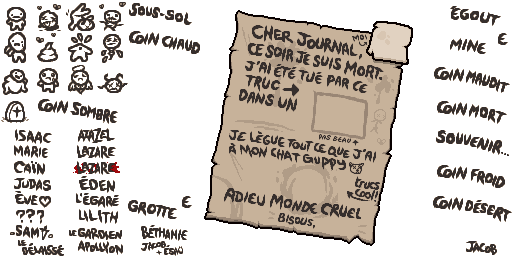 SOUS-SOL
COIN CHAUD
COIN SOMBRE
ISAAC
MARIE
CAÏN
JUDAS
ÈVE♡
???
SAMS.
LE DÉLAISSÉ
AZAZEL
LAZARE
LAZARE
ÉDEN
L'ÉGARÉ
LILITH
LE GARDIEN
APOLLYON
GROTTE
E
BÉTHANIE
JACOB + ÉSAÜ
CHER JOURNAL,
MOI
CE SOIR JE SUIS MORT.
J'AI ÉTÉ TUÉ PAR CE
TRUC →
DANS UN
PAS BEAU
JE LÈGUE TOUT CE QUE J'AI
À MON CHAT GUPPY
trucs cool!
ADIEU MONDE CRUEL
BISOUS,
ÉGOUT
MINE
E
COIN MAUDIT
COIN MORT
SOUVENIR...
COIN FROID
COIN DÉSERT
JACOB